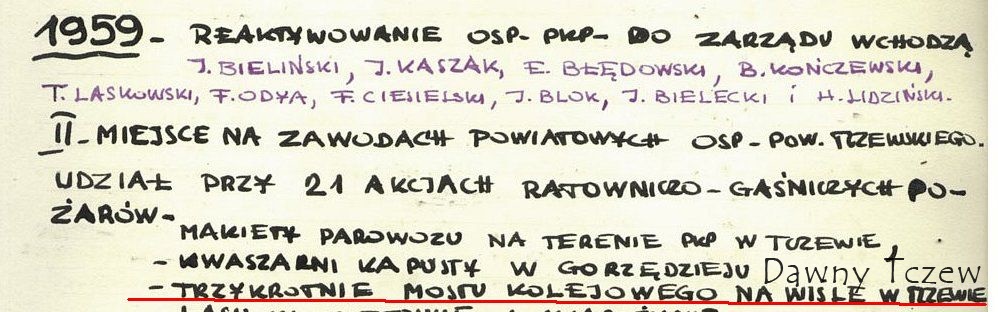 1959 - REAKTYWOWANIE OSP - PKP - DO ZARZĄDU WCHODZĄ
J. BIELIŃSKI, J. KASZAK, E. BŁĘDOWSKI, B. KOŃCZEWSKI,
T. LASKOWSKI, F. ODYA, F. CIESIELSKI, J. BLOK, J. BIELECKI i H. LIDZIŃSKI.
II - MIEJSCE NA ZAWODACH POWIATOWYCH OSP - POW. TCZEWSKIEGO.
UDZIAŁ PRZY 21 AKCJACH RATOWNICZO - GAŚNICZYCH PO-
ŻARÓW -
MAKIETY PAROWOZU NA TERENIE PKP W TCZEWIE,
- KWASZARNI KAPUSTY W GORZĘDZIEJU
Dawny Tczew
- TRZYKROTNIE MOSTU KOLEJOWEGO NA WIŚLE W TCZEWIE